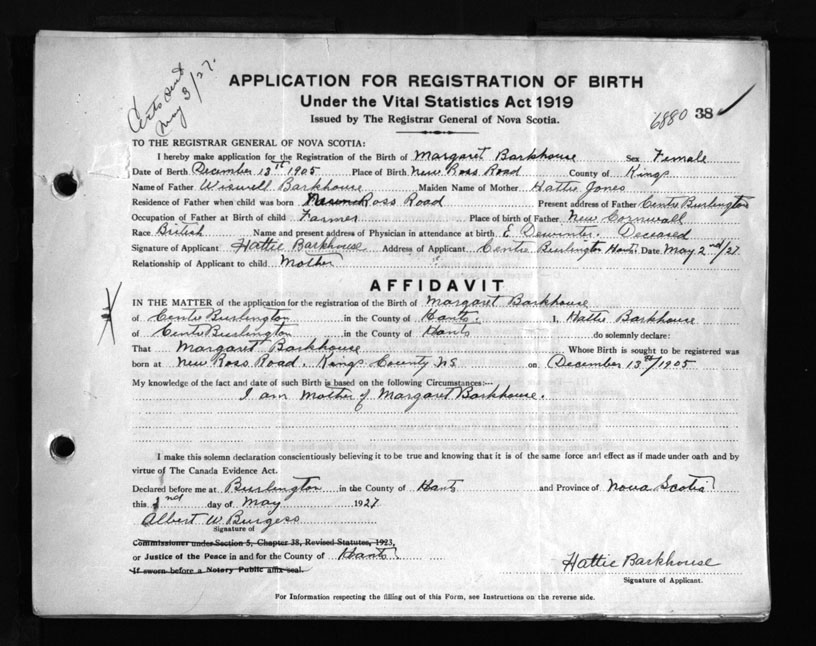 Certs sent
May 3/27.
APPLICATION FOR REGISTRATION OF BIRTH
Under the Vital Statistics Act 1919
Issued by The Registrar General of Nova Scotia.
6880 38
TO THE REGISTRAR GENERAL OF NOVA SCOTIA:
I hereby make application for the Registration of the Birth of Margaret Barkhouse Sex Female
Date of Birth December 13th 1905 Place of Birth New Ross Road County of Kings
Name of Father Wiswell Barkhouse Maiden Name of Mother Hattie Jones
Residence of Father when child was born Ross Road Present address of Father Centre Burlington
Occupation of Father at Birth of child Farmer Place of birth of Father New Cornwall
Race British Name and present address of Physician in attendance at birth E Dewinter. Deceased
Signature of Applicant Hattie Barkhouse Address of Applicant Centre Burlington Hants Date May 2nd/27.
Relationship of Applicant to child Mother
AFFIDAVIT
IN THE MATTER of the application for the registration of the Birth of Margaret Barkhouse
of Centre Burlington in the County of Hants. I, Hattie Barkhouse
of Centre Burlington in the County of Hants do solemnly declare:
That Margaret Barkhouse Whose Birth is sought to be registered was
born at New Ross Road. Kings County NS on December 13th/1905
My knowledge of the fact and date of such Birth is based on the following Circumstances:—
I am Mother of Margaret Barkhouse.
I make this solemn declaration conscientiously believing it to be true and knowing that it is of the same force and effect as if made under oath and by
virtue of The Canada Evidence Act.
Declared before me at Burlington in the County of Hants and Province of Nova Scotia
this 2nd day of May 1927
Albert W Burgess
Signature of
Commissioner under Section 5, Chapter 38, Revised Statutes, 1923,
or Justice of the Peace in and for the County of Hants.
If sworn before a Notary Public affix seal.
Hattie Barkhouse
Signature of Applicant.
For Information respecting the filling out of this Form, see Instructions on the reverse side.